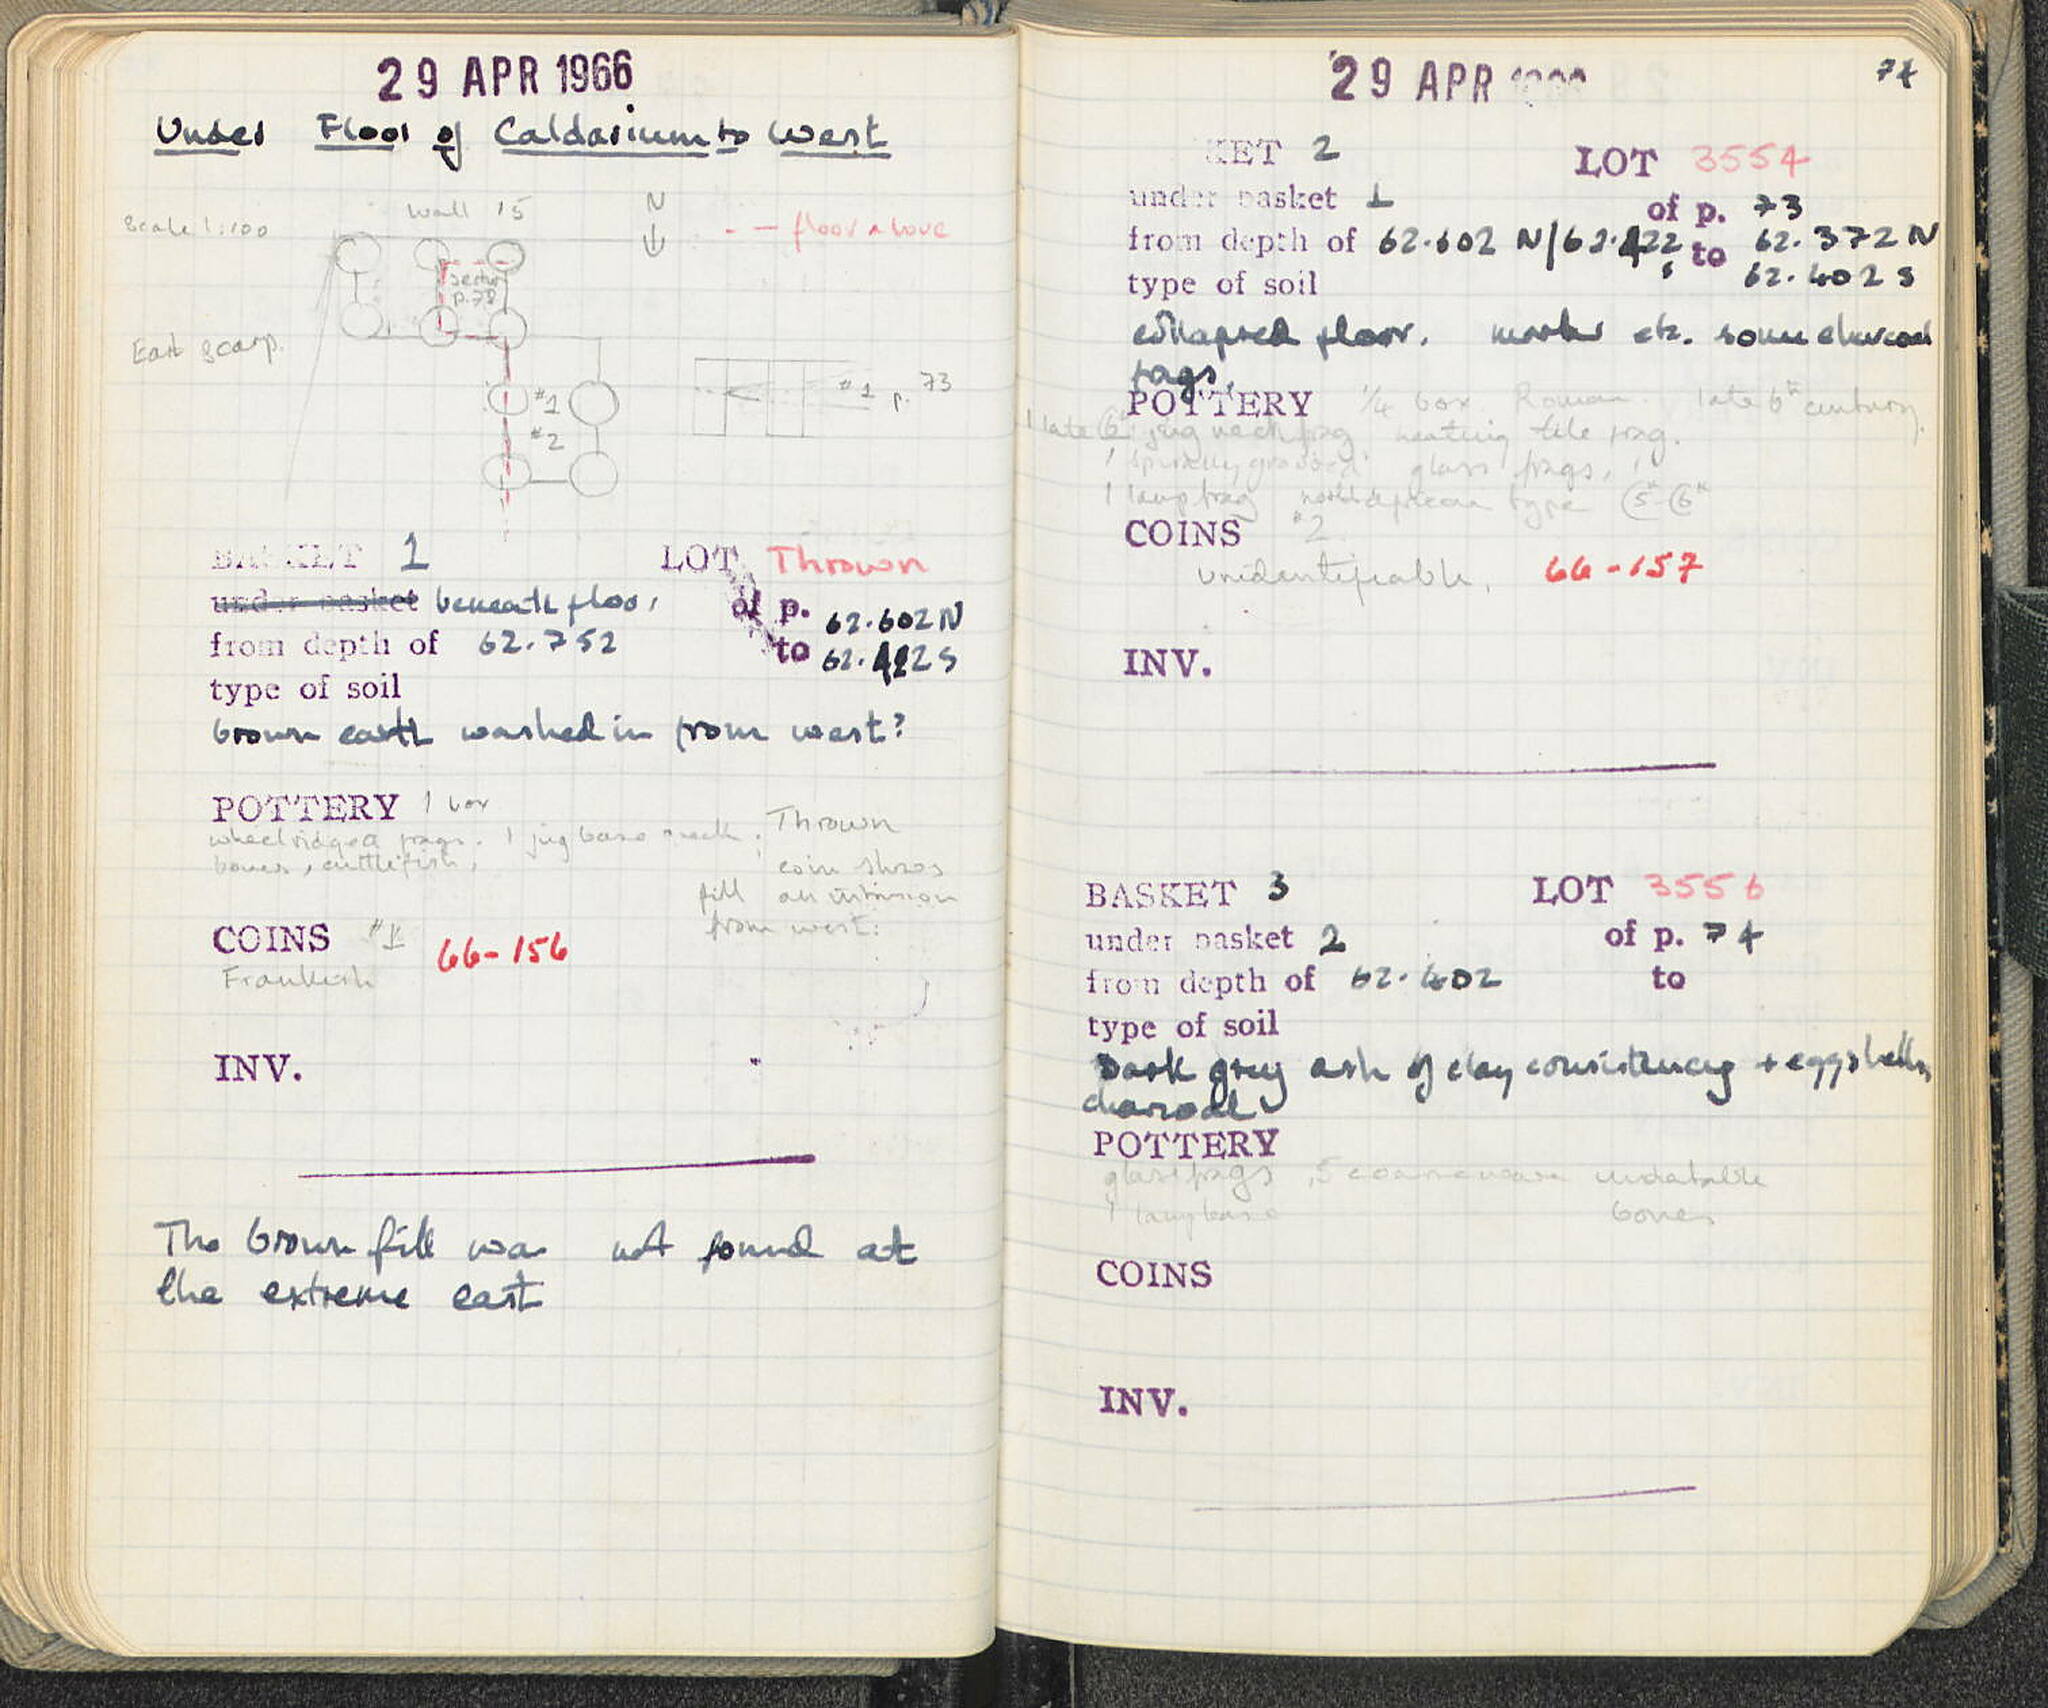 29 APR 1966
Under Floor of Caldarium to West
Scale 1:100
Wall 15
N
- — floor above
section
p. 78
East scarp.
#1
#2
#1 p. 73
BASKET 1 LOT Thrown
under basket beneath floor of p.
62.602 N
from depth of 62.752 to 62.422 S
type of soil
brown earth washed in from west?
POTTERY 1 box
wheelridged frags. 1 jug base neck;
bones, cuttlefish,
Thrown
coin shows
fill an intrusion
from west.
COINS #1 66-156
Frankish
INV.
The brown fill was not found at
the extreme east
29 APR
74
KET 2 LOT 3554
under basket 1 of p. 73
from depth of 62.602 N/62.422 s to 62.372 N
62.402 S
type of soil
collapsed floor. mortar etc. some charcoal
frags,
POTTERY 1/4 box Roman. late 6th century.
1 late 6 jug neck frag heating tile frag.
1 spirally grooved glass frags,
1 lamp frag north african type 5th-6th
COINS #2
unidentifiable. 66-157
INV.
BASKET 3 LOT 3556
under basket 2 of p. 74
from depth of 62.402 to
type of soil
Dark grey ash of clay consistency + eggshells,
charcoal
POTTERY
glass frags, 5 coarseware undatable
1 lamp base bones
COINS
INV.